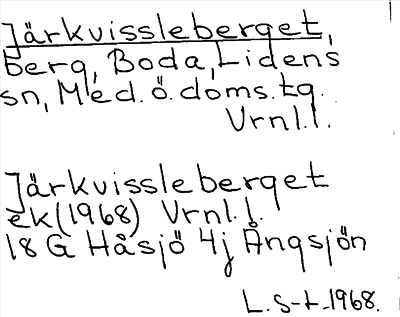 Järkvissleberget,
berg, Boda, Lidens
sn, Med. ö. doms. tg.
Vrnl. l.
Järkvissleberget
ek (1968) Vrnl. l.
18 G Håsjö 4j Ångsjön
L. S-t. 1968.